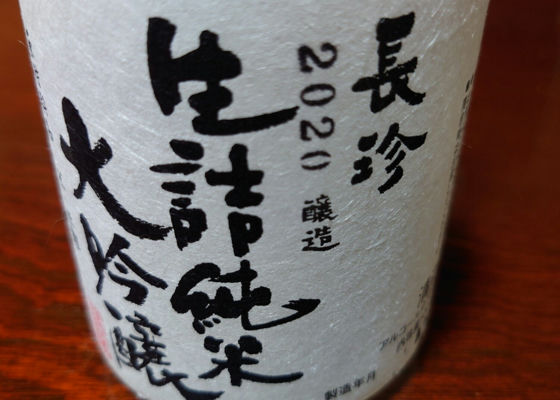 長珍
2020 醸造
生詰純米
大吟醸
製造年月